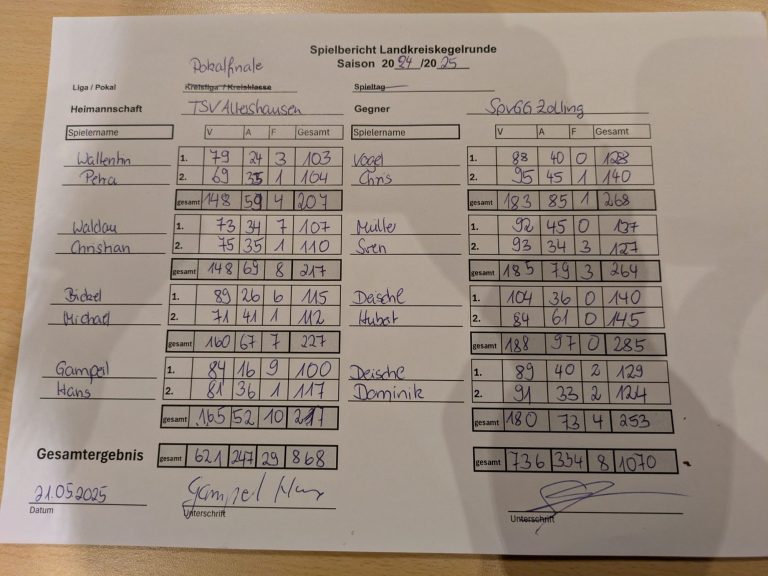 Spielbericht Landkreiskegelrunde
Pokalfinale Saison 2024/2025
Liga / Pokal Kreisliga / Kreisklasse Spieltag
Heimannschaft TSV Attenshausen Gegner SpVGG Zolling
Spielername V A F Gesamt Spielername V A F Gesamt
Wallentin 1. 79 24 3 103 Vogel 1. 88 40 0 128
Petra 2. 69 35 1 104 Chris 2. 95 45 1 140
gesamt 148 59 4 207 gesamt 183 85 1 268
Waldau 1. 73 34 7 107 Müller 1. 92 45 0 137
Christian 2. 75 35 1 110 Sven 2. 93 34 3 127
gesamt 148 69 8 217 gesamt 185 79 3 264
Bickel 1. 89 26 6 115 Deischl 1. 104 36 0 140
Michael 2. 71 41 1 112 Hubert 2. 84 61 0 145
gesamt 160 67 7 227 gesamt 188 97 0 285
Gampeil 1. 84 16 9 100 Deischl 1. 89 40 2 129
Hans 2. 81 36 1 117 Dominik 2. 91 33 2 124
gesamt 165 52 10 217 gesamt 180 73 4 253
Gesamtergebnis gesamt 621 247 29 868 gesamt 736 334 8 1070
21.05.2025 Gampeil Hans
Datum Unterschrift Unterschrift